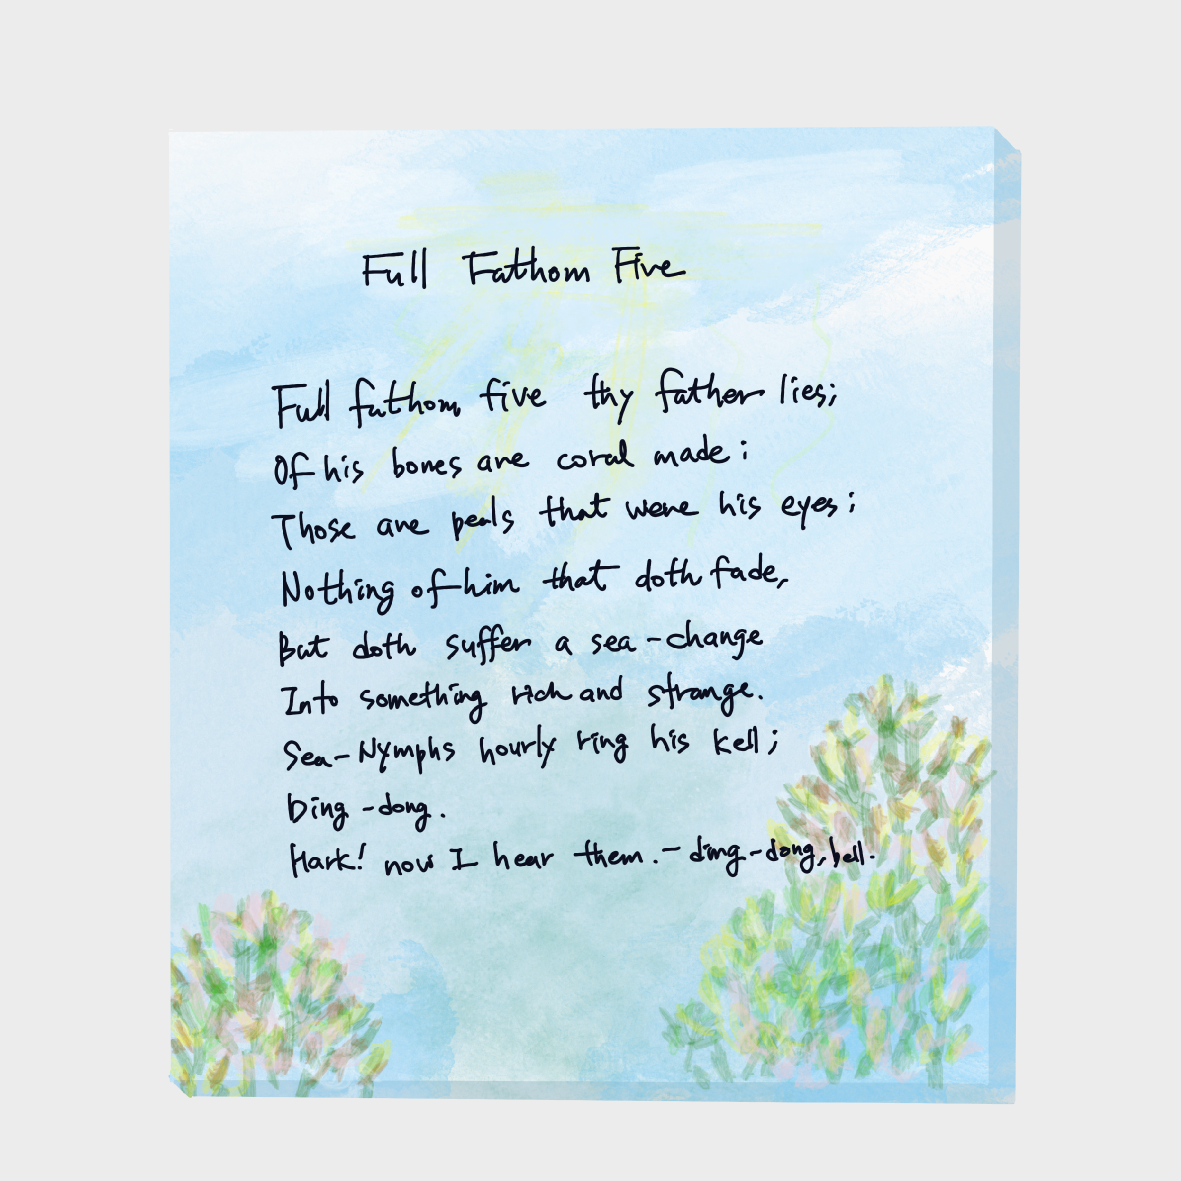 Full Fathom Five
Full fathom five thy father lies;
Of his bones are coral made;
Those are peals that were his eyes;
Nothing of him that doth fade,
But doth suffer a sea-change
Into something rich and strange.
Sea-Nymphs hourly ring his kell;
Ding-dong.
Hark! now I hear them.- ding-dong, bell.